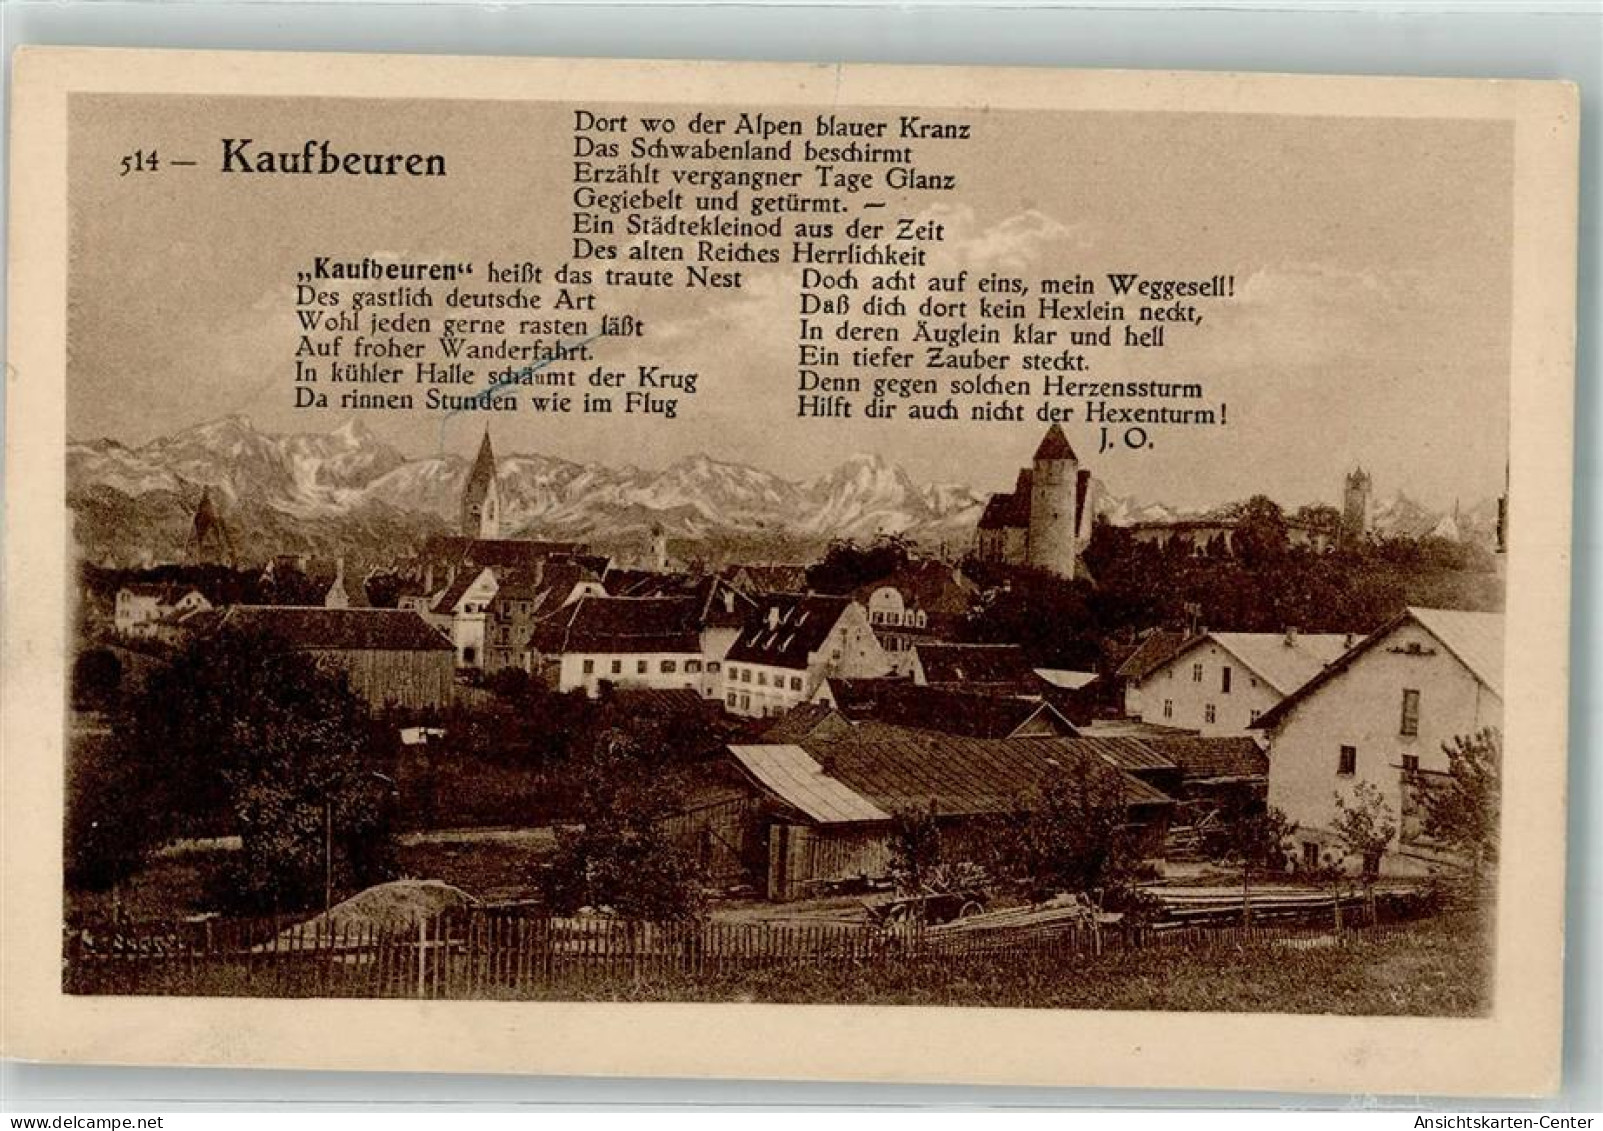 514 — Kaufbeuren
Dort wo der Alpen blauer Kranz
Das Schwabenland beschirmt
Erzählt vergangner Tage Glanz
Gegiebelt und getürmt. —
Ein Städtekleinod aus der Zeit
Des alten Reiches Herrlichkeit
„Kaufbeuren“ heißt das traute Nest
Des gastlich deutsche Art
Wohl jeden gerne rasten läßt
Auf froher Wanderfahrt.
In kühler Halle schäumt der Krug
Da rinnen Stunden wie im Flug
Doch acht auf eins, mein Weggesell!
Daß dich dort kein Hexlein neckt,
In deren Äuglein klar und hell
Ein tiefer Zauber steckt.
Denn gegen solchen Herzenssturm
Hilft dir auch nicht der Hexenturm!
J. O.
Ansichtskarten-Center